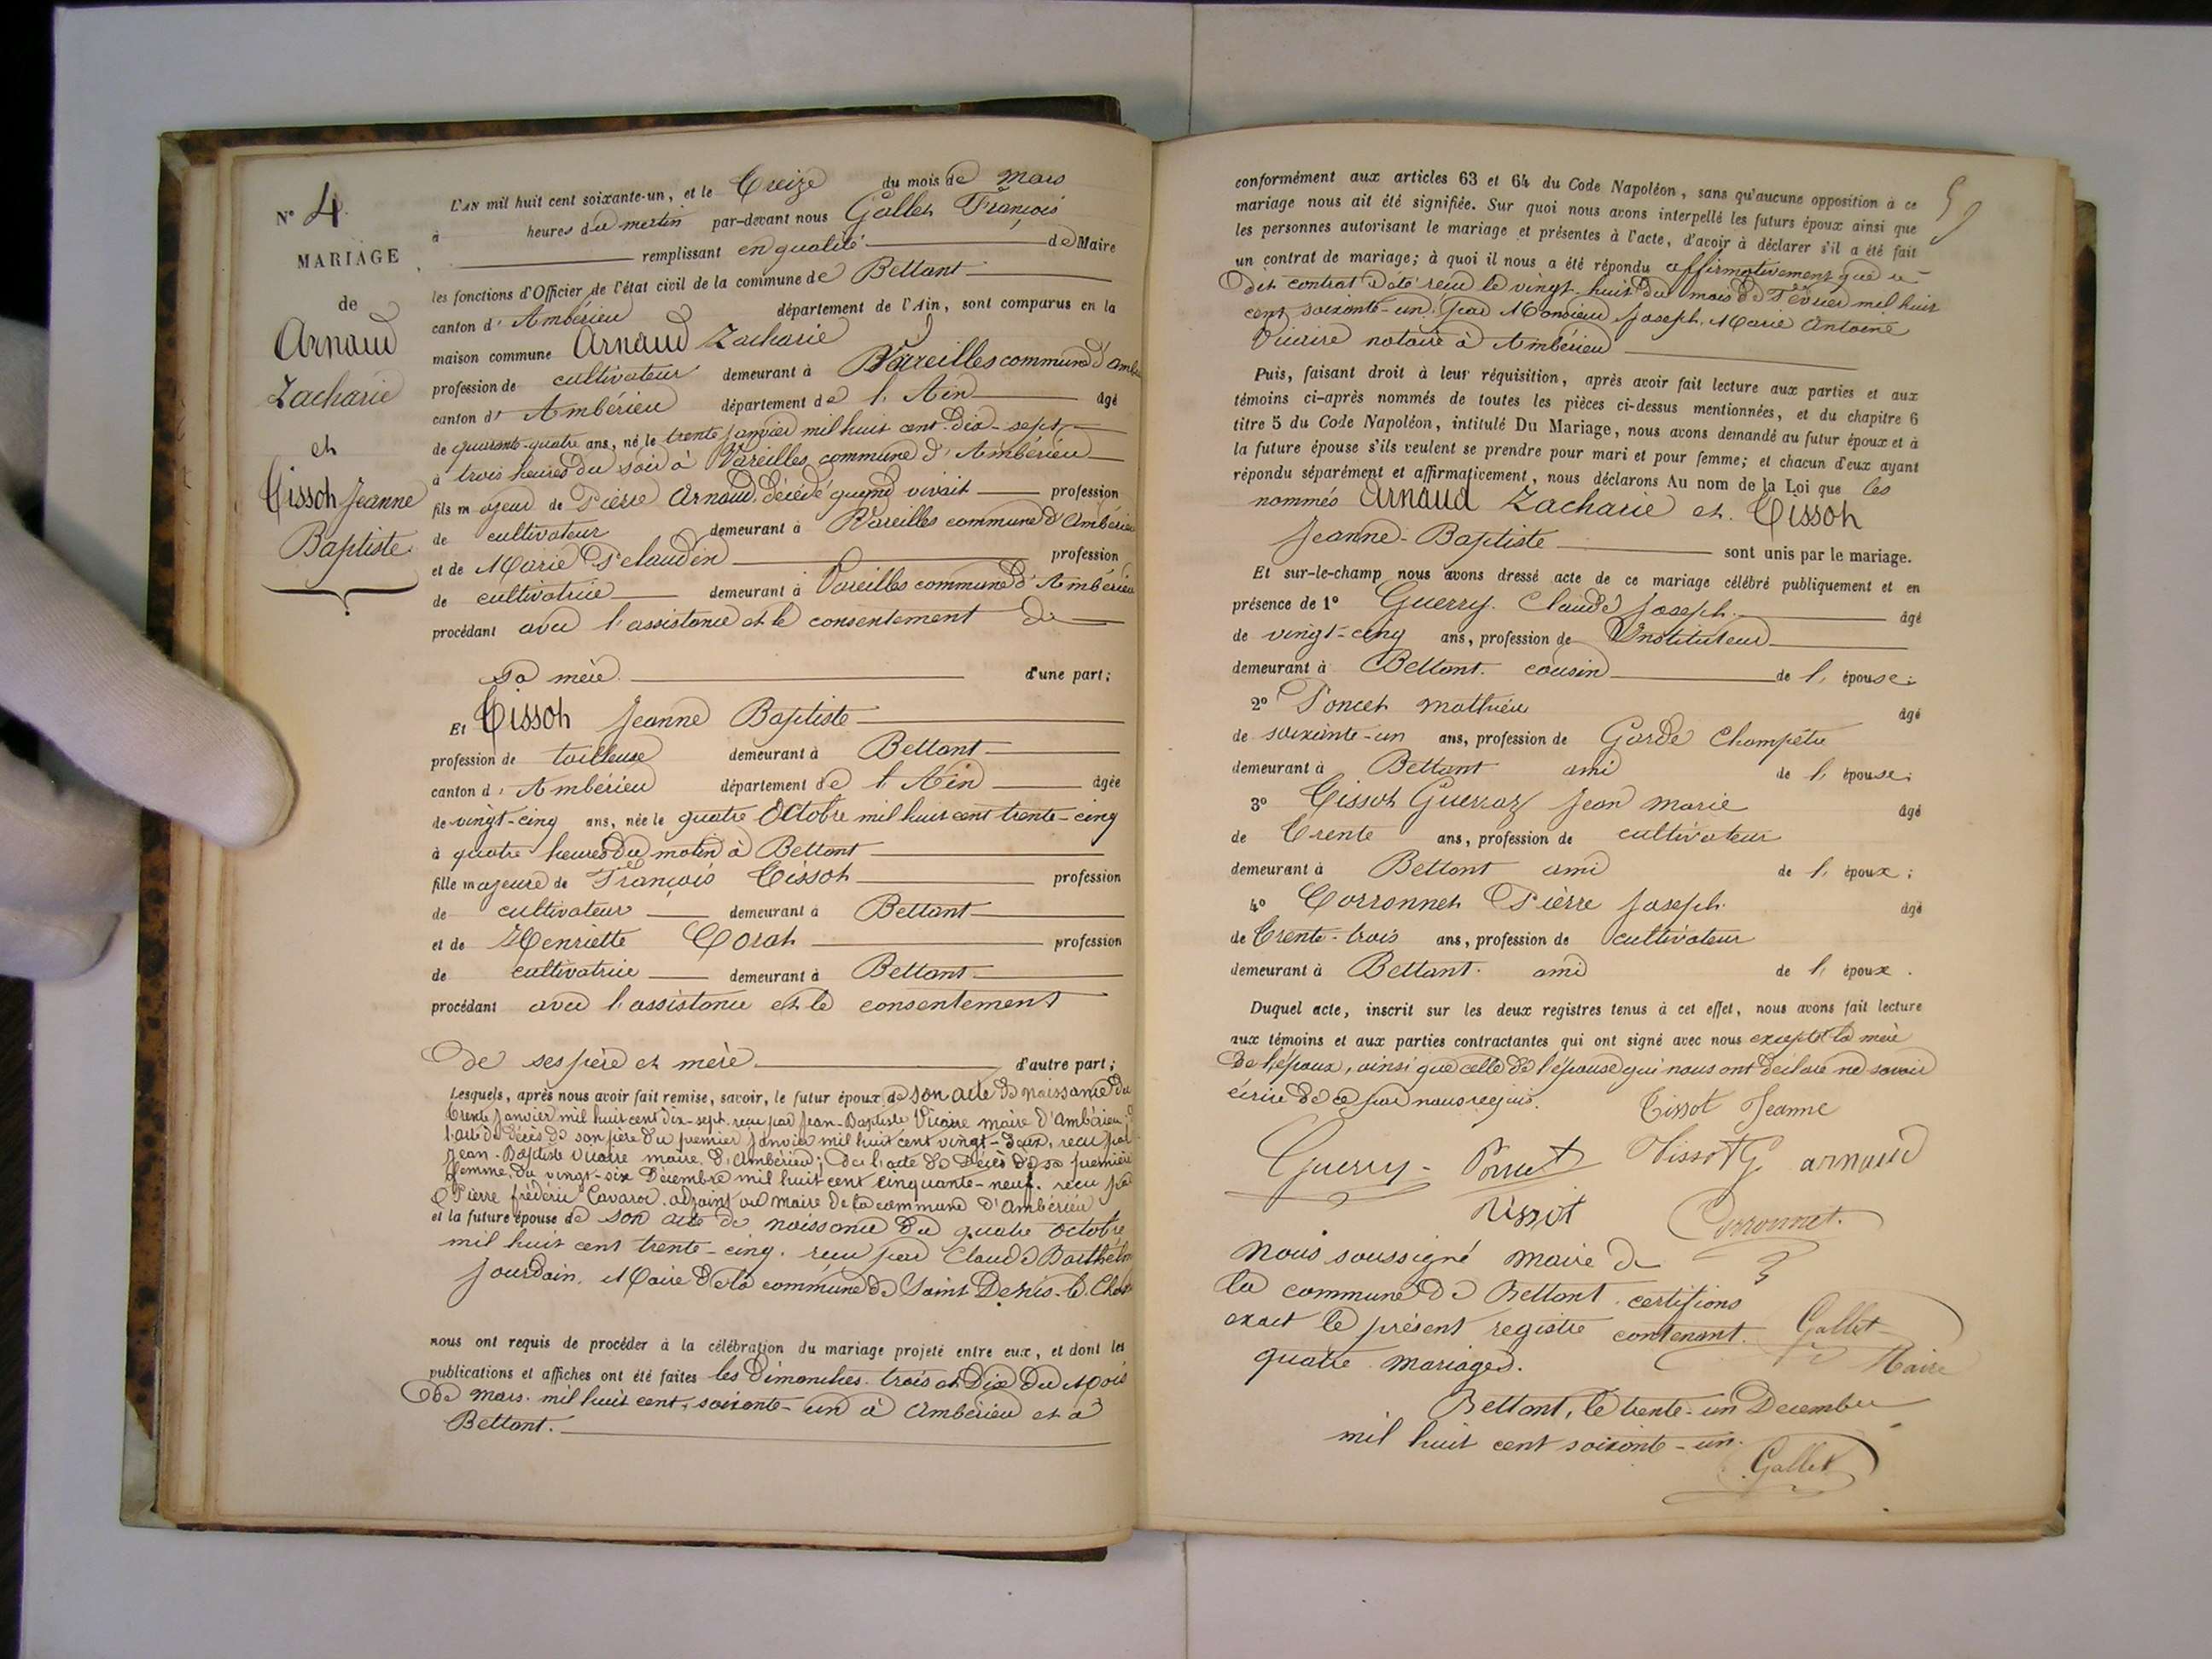 N° 4
MARIAGE
de
Arnaud
Zacharie
et
Tissot Jeanne
Baptiste
L'AN mil huit cent soixante-un, et le Treize du mois de Mars
à heures du matin par-devant nous Gallet François
remplissant en qualité de Maire
les fonctions d'Officier de l'état civil de la commune de Bettant
canton d' Ambérieu département de l'Ain, sont comparus en la
maison commune Arnaud Zacharie
profession de cultivateur demeurant à Vareilles commune d'Ambé
canton d' Ambérieu département de l'Ain âgé
de quarante-quatre ans, né le trente janvier mil huit cent dix-sept
à trois heures du soir à Vareilles commune d'Ambérieu
fils majeur de Pierre Arnaud, décédé quand vivait profession
de cultivateur demeurant à Vareilles commune d'Ambérieu
et de Marie profession
de cultivatrice demeurant à Vareilles commune d'Ambérieu
procédant avec l'assistance et le consentement de
sa mère d'une part;
Et Tissot Jeanne Baptiste
profession de tailleuse demeurant à Bettant
canton d' Ambérieu département de l'Ain âgée
de vingt-cinq ans, née le quatre Octobre mil huit cent trente-cinq
à quatre heures du matin à Bettant
fille majeure de François Tissot profession
de cultivateur demeurant à Bettant
et de Henriette profession
de cultivatrice demeurant à Bettant
procédant avec l'assistance et le consentement
de ses père et mère d'autre part;
Lesquels, après nous avoir fait remise, savoir, le futur époux de son acte de naissance du
trente janvier mil huit cent dix-sept reçu par Jean-Baptiste Vicaire maire d'Ambérieu;
l'acte de décès de son père du premier janvier mil huit cent vingt-deux, reçu par
Jean-Baptiste Vicaire maire d'Ambérieu; de l'acte de décès de sa première
femme, du vingt-six Décembre mil huit cent cinquante-neuf. reçu par
Pierre frédéric adjoint au maire de la commune d'Ambérieu
et la future épouse de son acte de naissance du quatre octobre
mil huit cent trente-cinq. reçu par Claude Barthélm
Jourdain, Maire de la commune de Saint Denis-le-Chos
nous ont requis de procéder à la célébration du mariage projeté entre eux, et dont les
publications et affiches ont été faites les dimanches trois et Dix du Mois
de Mars mil huit cent soixante-un à Ambérieu et à
Bettant.
conformément aux articles 63 et 64 du Code Napoléon, sans qu'aucune opposition à ce
mariage nous ait été signifiée. Sur quoi nous avons interpellé les futurs époux ainsi que
les personnes autorisant le mariage et présentes à l'acte, d'avoir à déclarer s'il a été fait
un contrat de mariage; à quoi il nous a été répondu affirmativement que le
dit contrat daté reçu le vingt-huit du mois de Février mil huit
cent soixante-un, par Monsieur Joseph Marie Antoine
Vicaire notaire à Ambérieu
Puis, faisant droit à leur réquisition, après avoir fait lecture aux parties et aux
témoins ci-après nommés de toutes les pièces ci-dessus mentionnées, et du chapitre 6
titre 5 du Code Napoléon, intitulé Du Mariage, nous avons demandé au futur époux et à
la future épouse s'ils veulent se prendre pour mari et pour femme; et chacun d'eux ayant
répondu séparément et affirmativement, nous déclarons Au nom de la Loi que les
nommés Arnaud Zacharie et Tissot
Jeanne-Baptiste sont unis par le mariage.
Et sur-le-champ nous avons dressé acte de ce mariage célébré publiquement et en
présence de 1° Guerry Claude Joseph âgé
de vingt-cinq ans, profession de Instituteur
demeurant à Bettant. cousin de l'épouse;
2° Poncet Mathieu âgé
de soixante-un ans, profession de Garde Champêtre
demeurant à Bettant ami de l'épouse;
3° Tissot Guerraz Jean Marie âgé
de Trente ans, profession de cultivateur
demeurant à Bettant ami de l'époux;
4° Corronnet Pierre Joseph âgé
de Trente-trois ans, profession de cultivateur
demeurant à Bettant. ami de l'époux.
Duquel acte, inscrit sur les deux registres tenus à cet effet, nous avons fait lecture
aux témoins et aux parties contractantes qui ont signé avec nous excepté la mère
de l'époux, ainsi que celle de l'épouse qui nous ont déclaré ne savoir
écrire de ce par nous requis.
Tissot Jeanne
Guerry Poncet Tissot G arnaud
Tissot Corronnet
Nous soussigné Maire de
la commune de Bettant certifions
exact le présent registre contenant
quatre mariages.
Gallet
Maire
Bettant, le trente-un Décembre
mil huit cent soixante-un.
Gallet